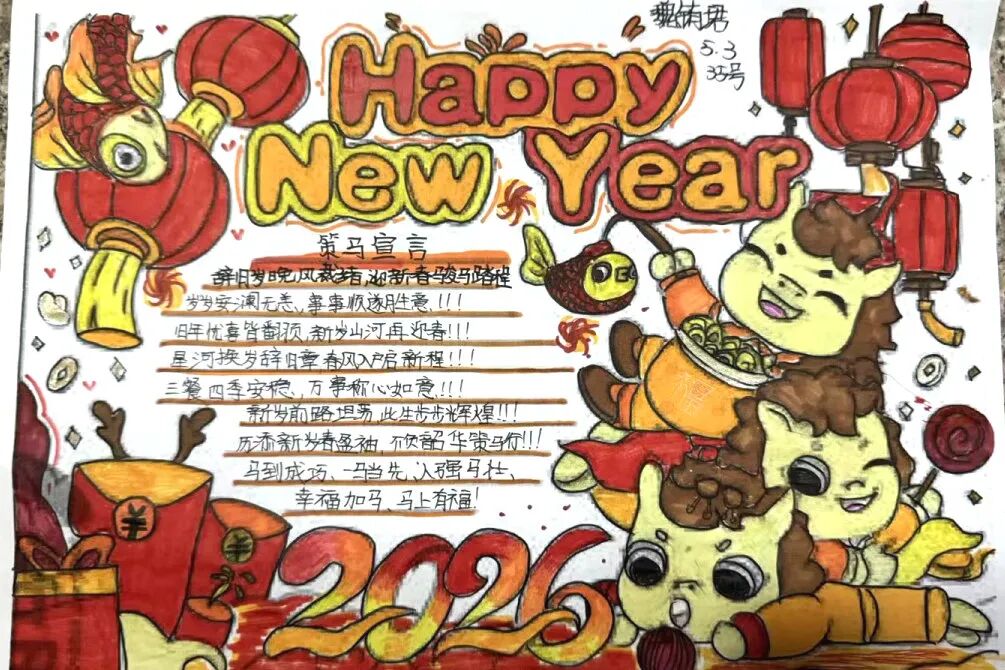 魏
5.3
35号
Happy
New Year
策马宣言
辞旧岁晚风裁绪,迎新春骏马踏程
岁岁安澜无恙、事事顺遂胜意.!!!
旧年忧喜皆翻页,新岁山河再迎春!!!
星河换岁辞旧章春风入户启新程!!!
三餐四季安稳、万事称心如意.!!!
新岁前路坦荡,此生步步辉煌!!!
历添新岁春盈袖,不负韶华策马行!!!
马到成功、一马当先、人强马壮、
幸福加马、马上有福!
¥
¥
2026